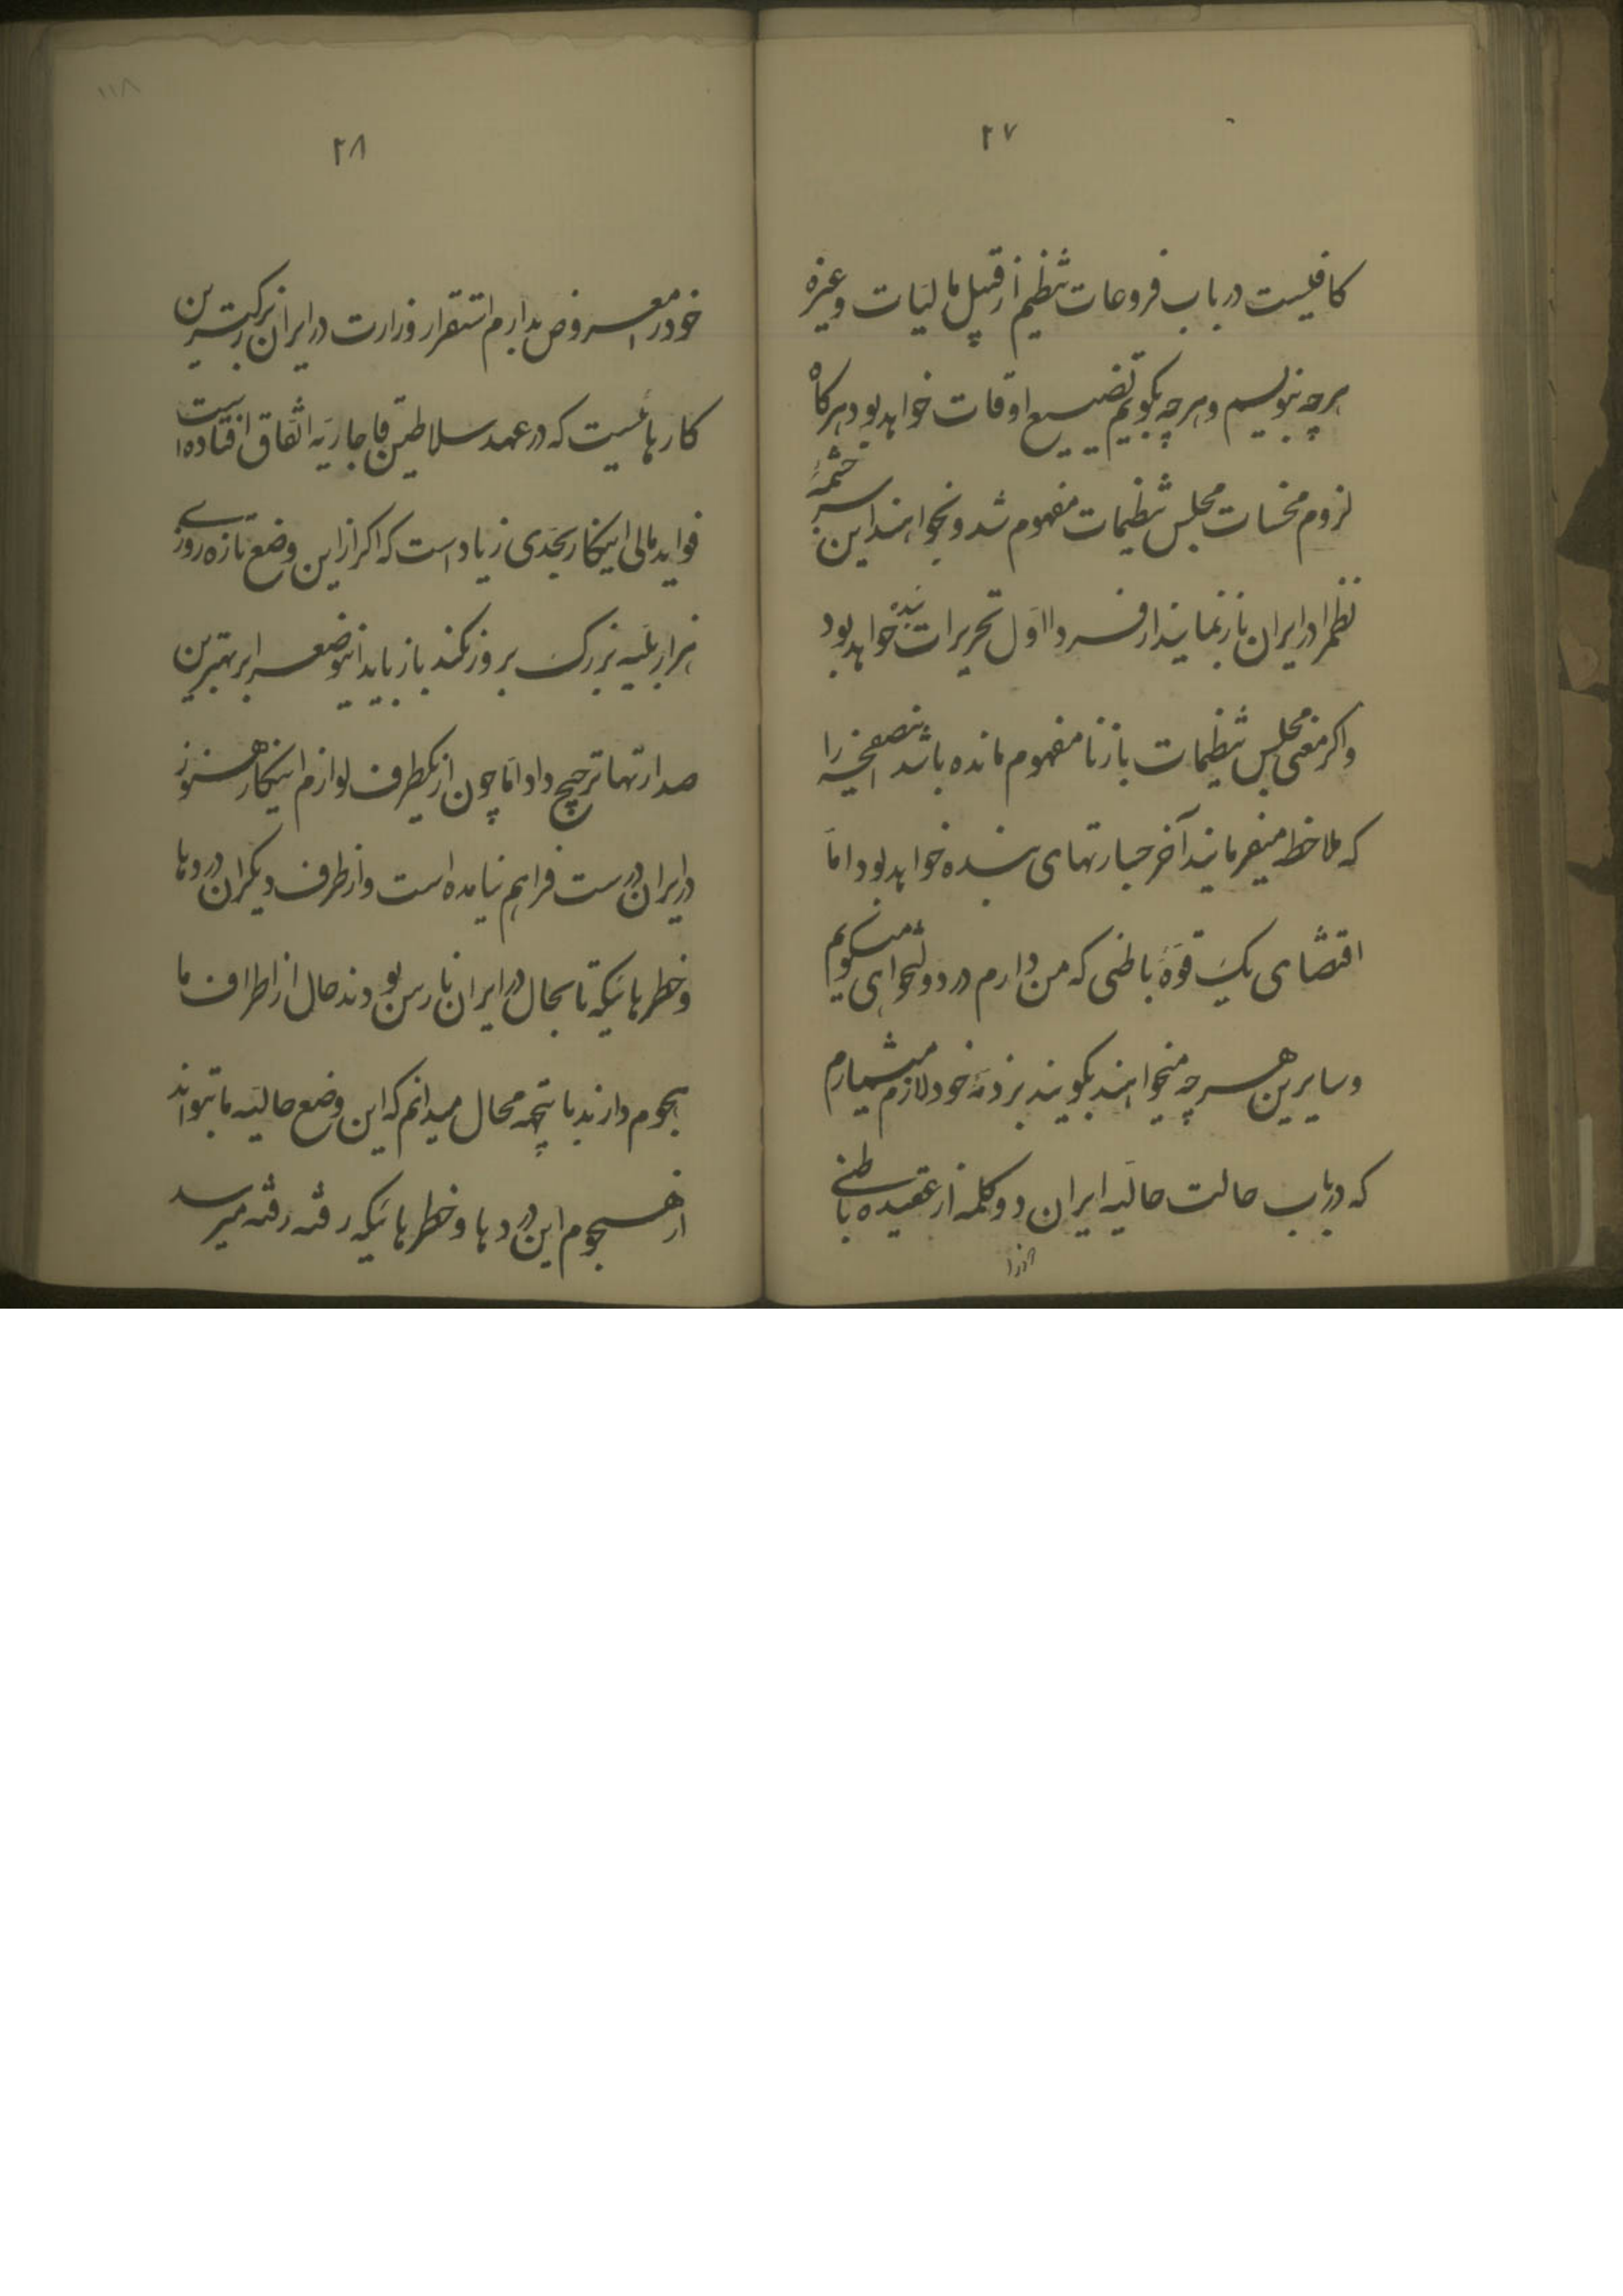 ۲۷
کافیست در باب فروعات تنظیم از قبیل مالیات و غیره
هرچه بنویسیم و هرچه بگویم تضییع اوقات خواهد بود هرکاه
لزوم محسنات مجلس تنظیمات مفهوم شد و بخواهند این سرچشمهٔ
نظم را در ایران باز نمایند از فردا اول تحریرات بنده خواهد بود
و اکر معنی مجلس تنظیمات باز نامفهوم مانده باشد این صفحه را
که ملاحظه میفرمایند آخر جسارتهای بنده خواهد بود اما
اقتضای یک قوهٔ باطنی که من دارم در دولتخواهی میکویم
و سایرین هرچه میخواهند بکویند بر ذمهٔ خود لازم میشمارم
که در باب حالت حالیه ایران دو کلمه از عقیده باطنی
خود را
۲۸
خود را معروض بدارم استقرار وزارت در ایران بزرکترین
کارهائیست که در عهد سلاطین قاجاریه اتفاق افتاده است
فواید مالی اینکار بحدی زیاد است که اکر از این وضع تازه روزی
هزار بلیه بزرک بروز کند باز باید اینوضع را بر بهترین
صدارتها ترجیح داد اما چون از یکطرف لوازم اینکار هنوز
در ایران درست فراهم نیامده است و از طرف دیکران دردها
و خطرهائیکه تا بحال در ایران نارس بودند حال از اطراف ما
هجوم دارند بانتهجه محال میدانم که این وضع حالیه ما بتواند
از هجوم این دردها و خطرهائیکه رفته رفته میرسد
۱۱۸